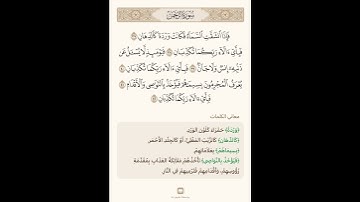 سُورَةُ الرَّحْمَٰن
فَإِذَا ٱنشَقَّتِ ٱلسَّمَآءُ فَكَانَتْ وَرْدَةً كَٱلدِّهَانِ
فَبِأَيِّ ءَالَآءِ رَبِّكُمَا تُكَذِّبَانِ فَيَوْمَئِذٍ لَّا يُسْـَٔلُ عَن
ذَنۢبِهِۦٓ إِنسٌ وَلَا جَآنٌّ فَبِأَيِّ ءَالَآءِ رَبِّكُمَا تُكَذِّبَانِ
يُعْرَفُ ٱلْمُجْرِمُونَ بِسِيمَٰهُمْ فَيُؤْخَذُ بِٱلنَّوَٰصِي وَٱلْأَقْدَامِ
فَبِأَيِّ ءَالَآءِ رَبِّكُمَا تُكَذِّبَانِ
معاني الكلمات
﴿وَرْدَةً﴾ حَمْرَاءَ كَلَوْنِ الوَرْدِ.
﴿كَالدِّهَانِ﴾ كَالزَّيْتِ المَغْلِيِّ، أَوْ كَالجِلْدِ الأَحْمَرِ.
﴿بِسِيمَاهُمْ﴾ بِعَلَامَاتِهِمْ.
﴿فَيُؤْخَذُ بِالنَّوَاصِي﴾ تَأْخُذُهُمْ مَلَائِكَةُ العَذَابِ بِمُقَدِّمَةِ
رُؤُوسِهِمْ، وَأَقْدَامِهِمْ فَتَرْمِيهِمْ فِي النَّارِ.